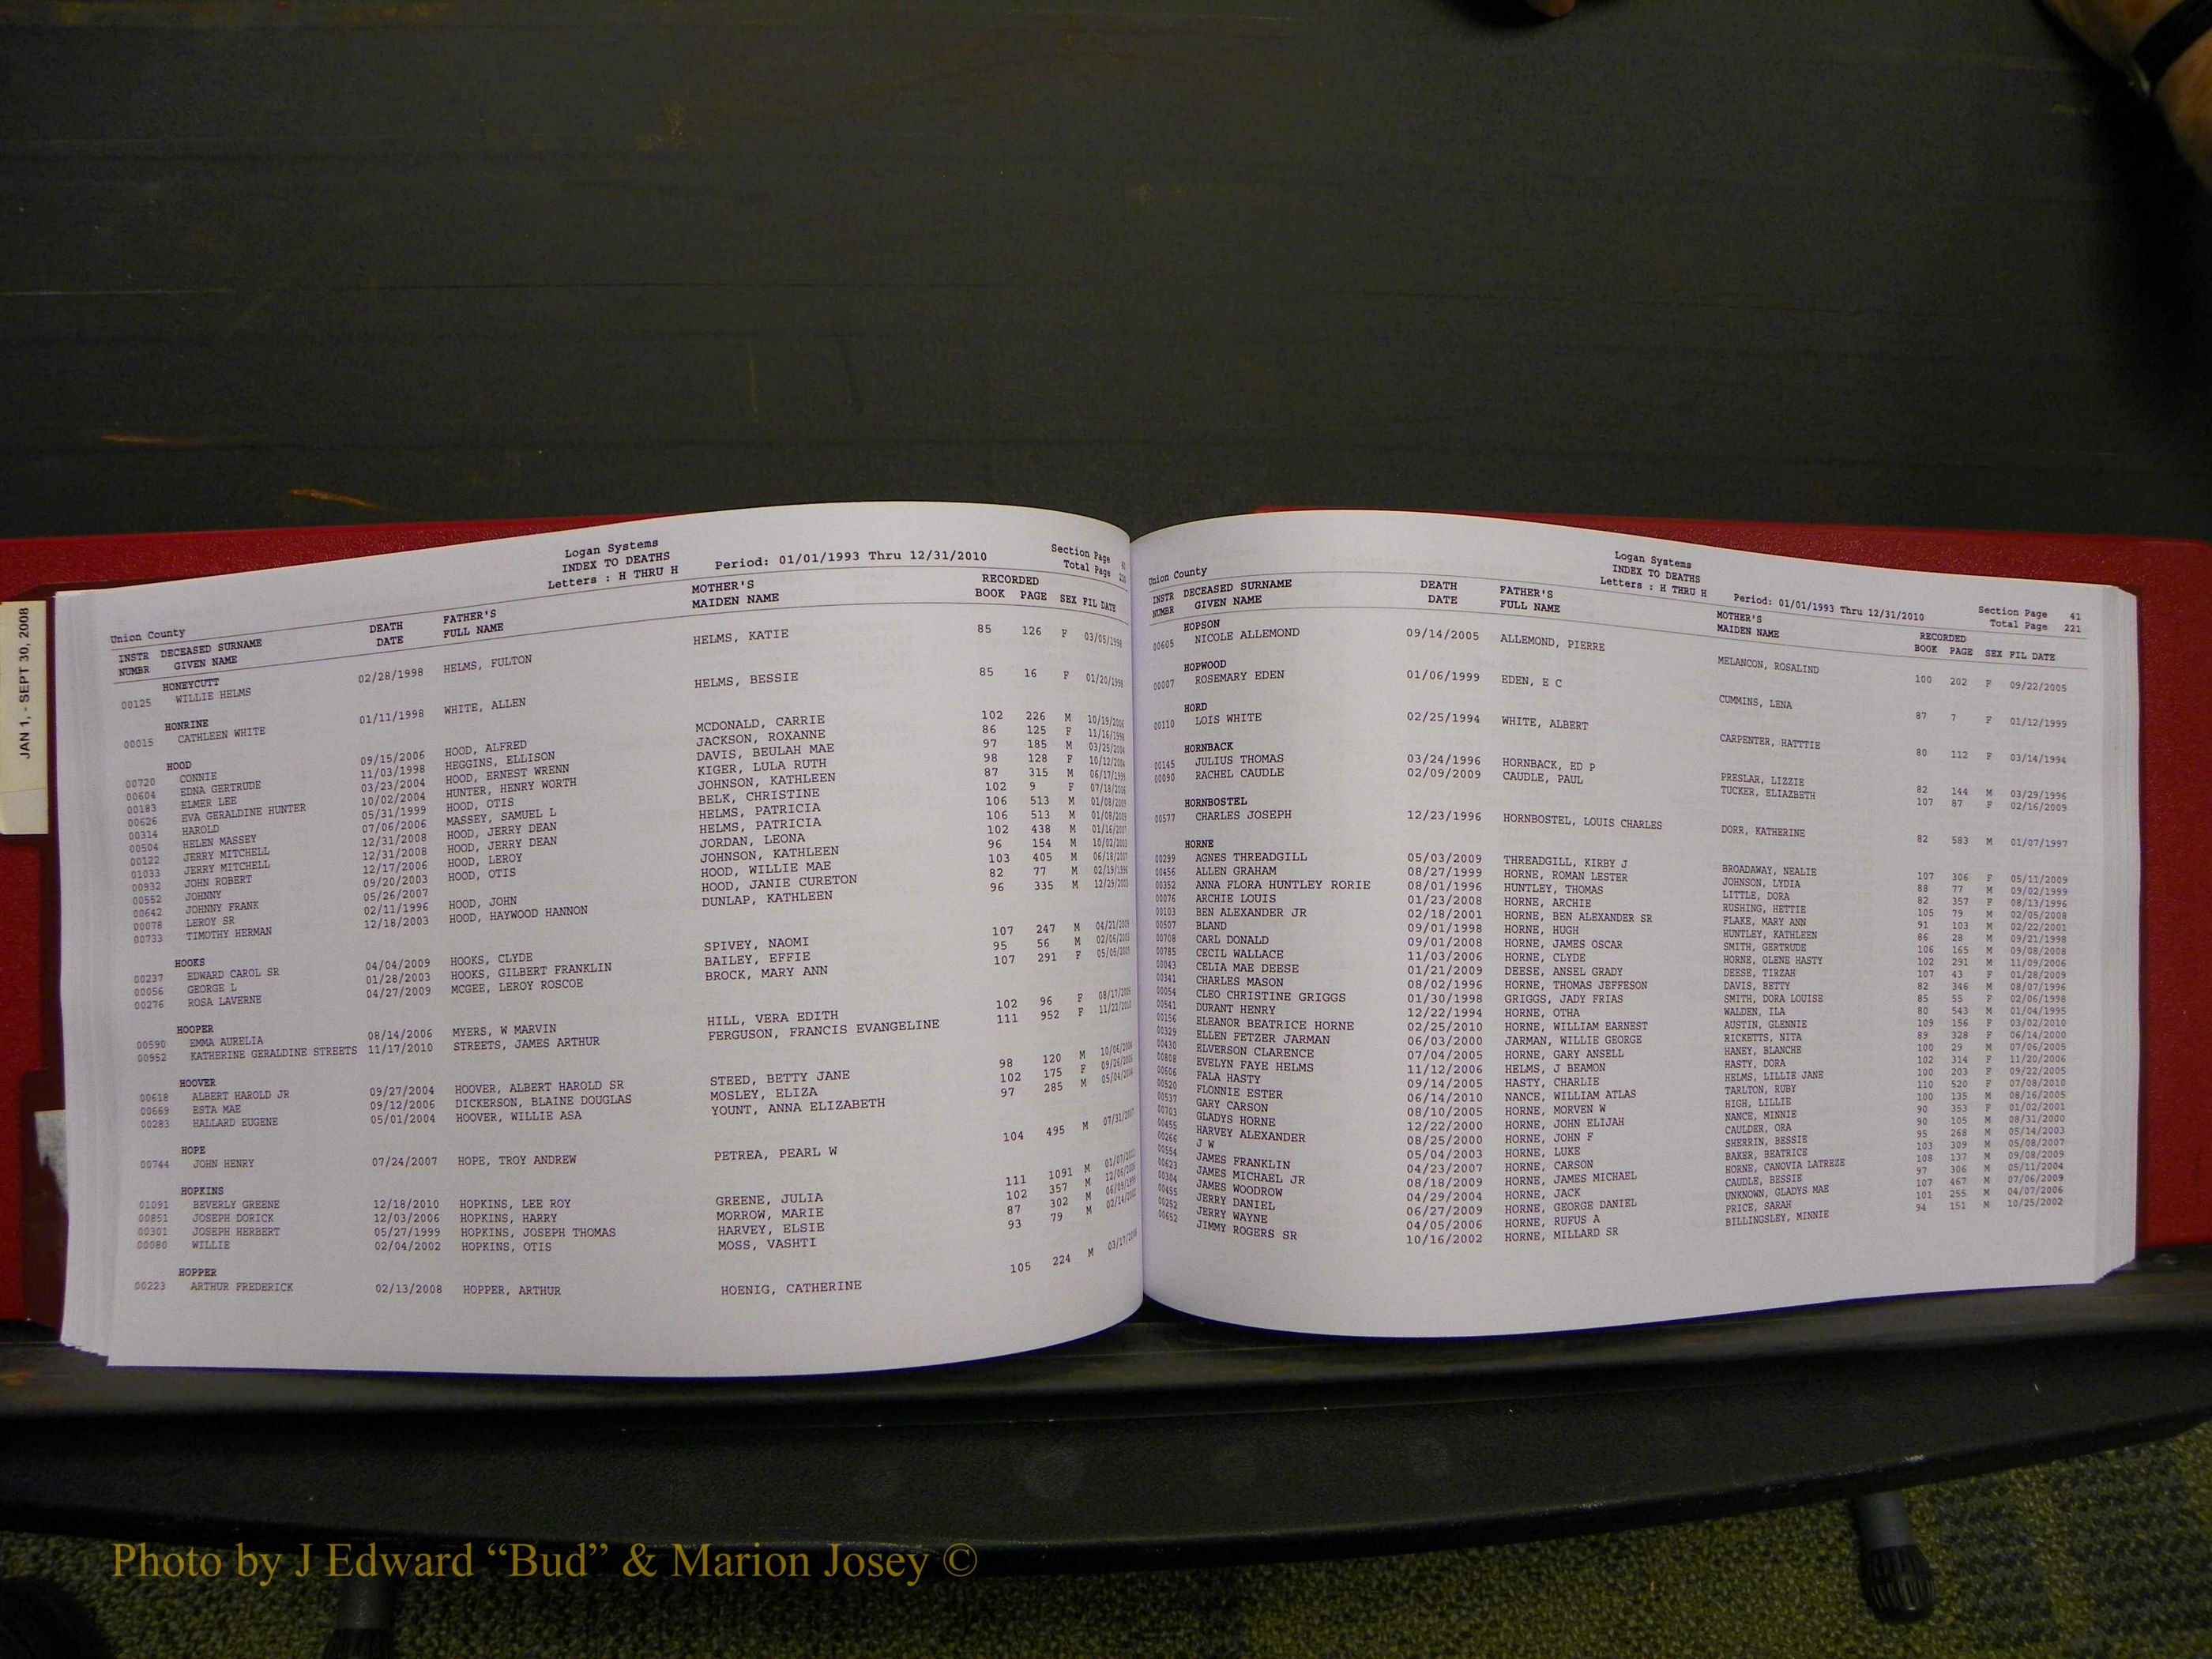 JAN 1, - SEPT 30, 2008
Logan Systems
INDEX TO DEATHS
Letters : H THRU H
Period: 01/01/1993 Thru 12/31/2010
Section Page
Total Page
Union County
INSTR DECEASED SURNAME DEATH FATHER'S MOTHER'S RECORDED
NUMBR GIVEN NAME DATE FULL NAME MAIDEN NAME BOOK PAGE SEX FIL DATE
HONEYCUTT
00125 WILLIE HELMS 02/28/1998 HELMS, FULTON HELMS, KATIE 85 126 F 03/05/1998
HONRINE
00015 CATHLEEN WHITE 01/11/1998 WHITE, ALLEN HELMS, BESSIE 85 16 F 01/20/1998
HOOD
00720 CONNIE 09/15/2006 HOOD, ALFRED MCDONALD, CARRIE 102 226 M 10/19/2006
00604 EDNA GERTRUDE 11/03/1998 HEGGINS, ELLISON JACKSON, ROXANNE 86 125 F 11/16/1998
00183 ELMER LEE 03/23/2004 HOOD, ERNEST WRENN DAVIS, BEULAH MAE 97 185 M 03/25/2004
00626 EVA GERALDINE HUNTER 10/02/2004 HUNTER, HENRY WORTH KIGER, LULA RUTH 98 128 F 10/12/2004
00314 HAROLD 05/31/1999 HOOD, OTIS JOHNSON, KATHLEEN 87 315 M 06/17/1999
00504 HELEN MASSEY 07/06/2006 MASSEY, SAMUEL L BELK, CHRISTINE 102 9 F 07/18/2006
00122 JERRY MITCHELL 12/31/2008 HOOD, JERRY DEAN HELMS, PATRICIA 106 513 M 01/08/2009
01033 JERRY MITCHELL 12/31/2008 HOOD, JERRY DEAN HELMS, PATRICIA 106 513 M 01/08/2009
00932 JOHN ROBERT 12/17/2006 HOOD, LEROY JORDAN, LEONA 102 438 M 01/16/2007
00552 JOHNNY 09/20/2003 HOOD, OTIS JOHNSON, KATHLEEN 96 154 M 10/02/2003
00642 JOHNNY FRANK 05/26/2007 HOOD, WILLIE MAE 103 405 M 06/18/2007
00078 LEROY SR 02/11/1996 HOOD, JOHN HOOD, JANIE CURETON 82 77 M 02/19/1996
00733 TIMOTHY HERMAN 12/18/2003 HOOD, HAYWOOD HANNON DUNLAP, KATHLEEN 96 335 M 12/29/2003
HOOKS
00237 EDWARD CAROL SR 04/04/2009 HOOKS, CLYDE SPIVEY, NAOMI 107 247 M 04/21/2009
00056 GEORGE L 01/28/2003 HOOKS, GILBERT FRANKLIN BAILEY, EFFIE 95 56 M 02/06/2003
00276 ROSA LAVERNE 04/27/2009 MCGEE, LEROY ROSCOE BROCK, MARY ANN 107 291 F 05/05/2009
HOOPER
00590 EMMA AURELIA 08/14/2006 MYERS, W MARVIN HILL, VERA EDITH 102 96 F 08/17/2006
00952 KATHERINE GERALDINE STREETS 11/17/2010 STREETS, JAMES ARTHUR FERGUSON, FRANCIS EVANGELINE 111 952 F 11/23/2010
HOOVER
00618 ALBERT HAROLD JR 09/27/2004 HOOVER, ALBERT HAROLD SR STEED, BETTY JANE 98 120 M 10/06/2004
00669 ESTA MAE 09/12/2006 DICKERSON, BLAINE DOUGLAS MOSLEY, ELIZA 102 175 F 09/26/2006
00283 HALLARD EUGENE 05/01/2004 HOOVER, WILLIE ASA YOUNT, ANNA ELIZABETH 97 285 M 05/04/2004
HOPE
00744 JOHN HENRY 07/24/2007 HOPE, TROY ANDREW PETREA, PEARL W 104 495 M 07/31/2007
HOPKINS
01091 BEVERLY GREENE 12/18/2010 HOPKINS, LEE ROY GREENE, JULIA 111 1091 M
00851 JOSEPH DORICK 12/03/2006 HOPKINS, HARRY MORROW, MARIE 102 357 M 12/06/2006
00301 JOSEPH HERBERT 05/27/1999 HOPKINS, JOSEPH THOMAS HARVEY, ELSIE 87 302 M 06/09/1999
00080 WILLIE 02/04/2002 HOPKINS, OTIS MOSS, VASHTI 93 79 M 02/14/2002
HOPPER
00223 ARTHUR FREDERICK 02/13/2008 HOPPER, ARTHUR HOENIG, CATHERINE 105 224 M 03/17/2008
Logan Systems
INDEX TO DEATHS
Letters : H THRU H
Period: 01/01/1993 Thru 12/31/2010
Section Page 41
Total Page 221
Union County
INSTR DECEASED SURNAME DEATH FATHER'S MOTHER'S RECORDED
NUMBR GIVEN NAME DATE FULL NAME MAIDEN NAME BOOK PAGE SEX FIL DATE
HOPSON
00605 NICOLE ALLEMOND 09/14/2005 ALLEMOND, PIERRE MELANCON, ROSALIND 100 202 F 09/22/2005
HOPWOOD
00007 ROSEMARY EDEN 01/06/1999 EDEN, E C CUMMINS, LENA 87 7 F 01/12/1999
HORD
00110 LOIS WHITE 02/25/1994 WHITE, ALBERT CARPENTER, HATTTIE 80 112 F 03/14/1994
HORNBACK
00145 JULIUS THOMAS 03/24/1996 HORNBACK, ED P PRESLAR, LIZZIE 82 144 M 03/29/1996
00090 RACHEL CAUDLE 02/09/2009 CAUDLE, PAUL TUCKER, ELIAZBETH 107 87 F 02/16/2009
HORNBOSTEL
00577 CHARLES JOSEPH 12/23/1996 HORNBOSTEL, LOUIS CHARLES DORR, KATHERINE 82 583 M 01/07/1997
HORNE
00299 AGNES THREADGILL 05/03/2009 THREADGILL, KIRBY J BROADAWAY, NEALIE 107 306 F 05/11/2009
00456 ALLEN GRAHAM 08/27/1999 HORNE, ROMAN LESTER JOHNSON, LYDIA 88 77 M 09/02/1999
00352 ANNA FLORA HUNTLEY RORIE 08/01/1996 HUNTLEY, THOMAS LITTLE, DORA 82 357 F 08/13/1996
00076 ARCHIE LOUIS 01/23/2008 HORNE, ARCHIE RUSHING, HETTIE 105 79 M 02/05/2008
00103 BEN ALEXANDER JR 02/18/2001 HORNE, BEN ALEXANDER SR FLAKE, MARY ANN 91 103 M 02/22/2001
00507 BLAND 09/01/1998 HORNE, HUGH HUNTLEY, KATHLEEN 86 28 M 09/21/1998
00708 CARL DONALD 09/01/2008 HORNE, JAMES OSCAR SMITH, GERTRUDE 106 165 M 09/08/2008
00785 CECIL WALLACE 11/03/2006 HORNE, CLYDE HORNE, OLENE HASTY 102 291 M 11/09/2006
00043 CELIA MAE DEESE 01/21/2009 DEESE, ANSEL GRADY DEESE, TIRZAH 107 43 F 01/28/2009
00341 CHARLES MASON 08/02/1996 HORNE, THOMAS JEFFESON DAVIS, BETTY 82 346 M 08/07/1996
00054 CLEO CHRISTINE GRIGGS 01/30/1998 GRIGGS, JADY FRIAS SMITH, DORA LOUISE 85 55 F 02/06/1998
00541 DURANT HENRY 12/22/1994 HORNE, OTHA WALDEN, ILA 80 543 M 01/04/1995
00156 ELEANOR BEATRICE HORNE 02/25/2010 HORNE, WILLIAM EARNEST AUSTIN, GLENNIE 109 156 F 03/02/2010
00329 ELLEN FETZER JARMAN 06/03/2000 JARMAN, WILLIE GEORGE RICKETTS, NITA 89 328 F 06/14/2000
00430 ELVERSON CLARENCE 07/04/2005 HORNE, GARY ANSELL HANEY, BLANCHE 100 29 M 07/06/2005
00808 EVELYN FAYE HELMS 11/12/2006 HELMS, J BEAMON HASTY, DORA 102 314 F 11/20/2006
00606 FALA HASTY 09/14/2005 HASTY, CHARLIE HELMS, LILLIE JANE 100 203 F 09/22/2005
00520 FLONNIE ESTER 06/14/2010 NANCE, WILLIAM ATLAS TARLTON, RUBY 110 520 F 07/08/2010
00537 GARY CARSON 08/10/2005 HORNE, MORVEN W HIGH, LILLIE 100 135 M 08/16/2005
00703 GLADYS HORNE 12/22/2000 HORNE, JOHN ELIJAH NANCE, MINNIE 90 353 F 01/02/2001
00455 HARVEY ALEXANDER 08/25/2000 HORNE, JOHN F CAULDER, ORA 90 105 M 08/31/2000
00266 J W 05/04/2003 HORNE, LUKE SHERRIN, BESSIE 95 268 M 05/14/2003
00554 JAMES FRANKLIN 04/23/2007 HORNE, CARSON BAKER, BEATRICE 103 309 M 05/08/2007
00623 JAMES MICHAEL JR 08/18/2009 HORNE, JAMES MICHAEL HORNE, CANOVIA LATREZE 108 137 M 09/08/2009
00304 JAMES WOODROW 04/29/2004 HORNE, JACK CAUDLE, BESSIE 97 306 M 05/11/2004
00455 JERRY DANIEL 06/27/2009 HORNE, GEORGE DANIEL UNKNOWN, GLADYS MAE 107 467 M 07/06/2009
00252 JERRY WAYNE 04/05/2006 HORNE, RUFUS A PRICE, SARAH 101 255 M 04/07/2006
00652 JIMMY ROGERS SR 10/16/2002 HORNE, MILLARD SR BILLINGSLEY, MINNIE 94 151 M 10/25/2002
Photo by J Edward “Bud” & Marion Josey ©